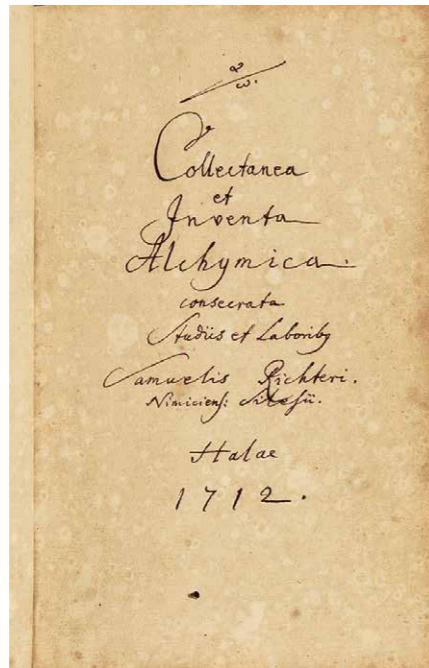 α
ω.
Collectanea
et
Inventa
Alchymica.
consecrata
Studiis et Laboribꝫ
Samuelis Richteri.
Nimiciens: Silesii.
Halae
1712.